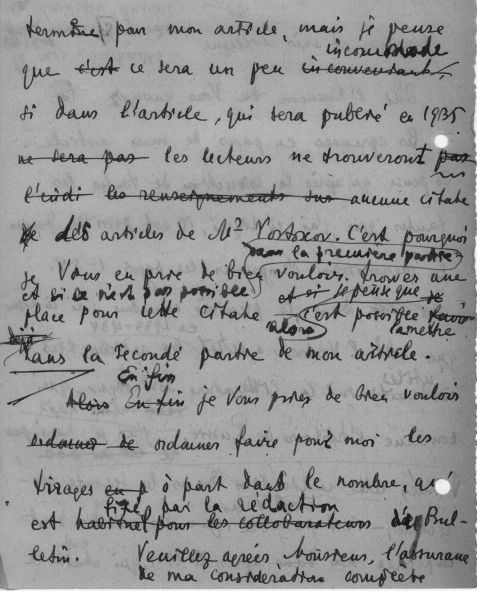 terminé par mon article, mais je pense
incommode
que c'est ce sera un peu inconvenant,
si dans l'article, qui sera publié en 1935
ne sera pas les lecteurs ne trouveront pas
l'endi les renseignements sur aucune citate
de des articles de Mr Vostokov. C'est pourquoi
dans la première partie
je Vous en prie de bien vouloir trouver une
et si ce n'est pas possible et si je pense que
place pour cette citate c'est possible
alors la mettre
déjà dans la seconde partie de mon article.
Enfin
Alors Enfin je Vous pries de bien vouloir
ordonner de ordonner faire pour moi les
tirages en p à part dans le nombre, qui
fixé par la rédaction
est habituel pour les collobarateurs du Bul-
letin. Veuillez agréer, Monsieur, l'assurance
de ma considération complète